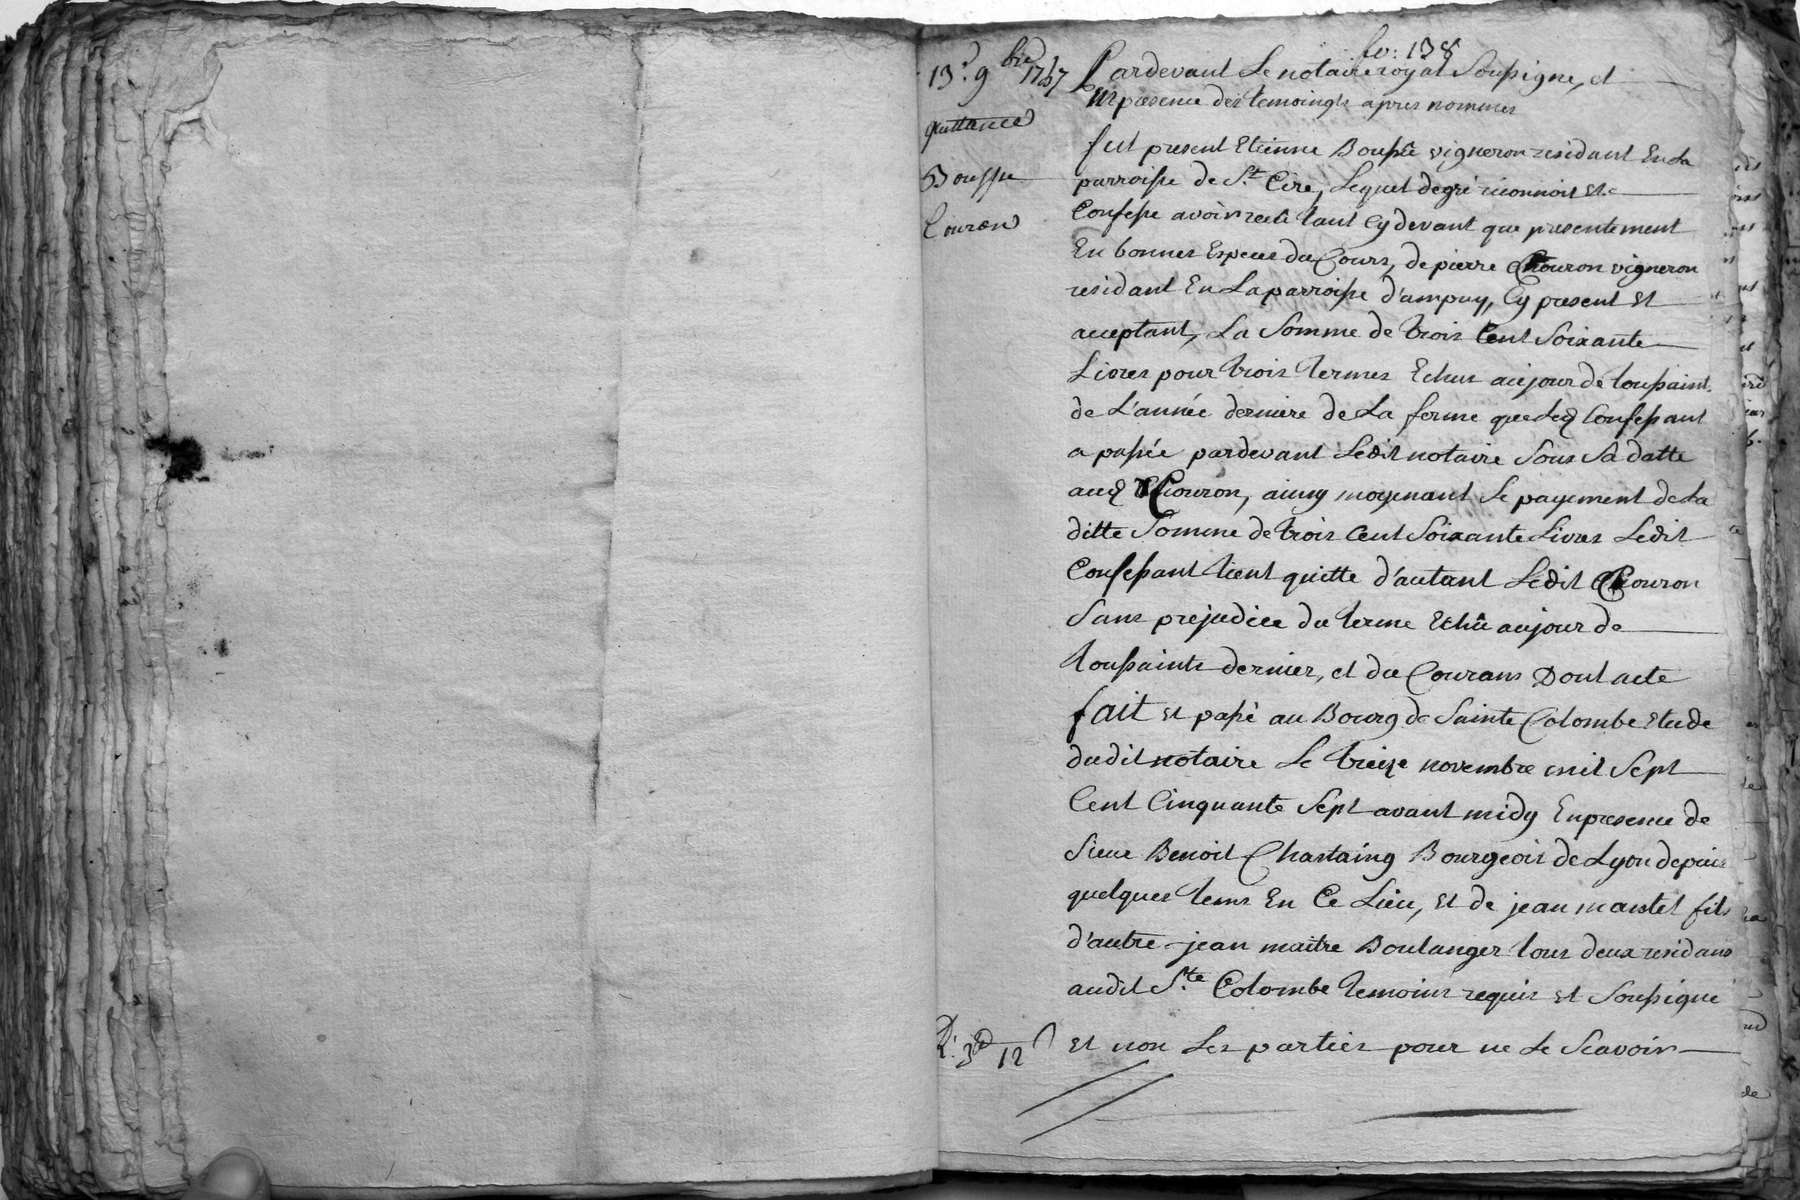 fo: 138
13.e 9bre 1757
quittance
Bousse
Couron
Pardevant Le notaire royal Soussigne, et
En presence des temoingts apres nommes
fut present Etienne Boussû vigneron residant En La
parroisse de St. Cire, Lequel de gré reconnoit et
Confesse avoir recû tant Cy devant que presentement
En bonnes Especes du Cours, de pierre Chouron vigneron
residant En La parroisse d'ampuy, Cy present Et
acceptant, La Somme de trois Cent Soixante
Livres pour trois termes Echus au jour de toussaint
de L'année derniere de La ferme que Led Confessant
a passée pardevant Ledit notaire Sous Sa datte
aud Chouron, ainsy moyenant Le payement de La
ditte Somme de trois Cent Soixante Livres Ledit
Confessant tient quitte d'autant Ledit Chouron
Sans prejudice du terme Echû au jour de
toussaints dernier, et du Courans Dont acte
fait Et passé au Bourg de Sainte Colombe Etude
dudit notaire Le treize novembre mil Sept
Cent Cinquante Sept avant midy En presence de
Sieur Benoit Chastaing Bourgeois de Lyon depuis
quelques tems En Ce Lieu, Et de jean mantel fils
d'autre jean maitre Boulanger tous deux residans
audit Ste. Colombe temoins requis Et Soussigné
Et non Les parties pour ne Le Scavoir